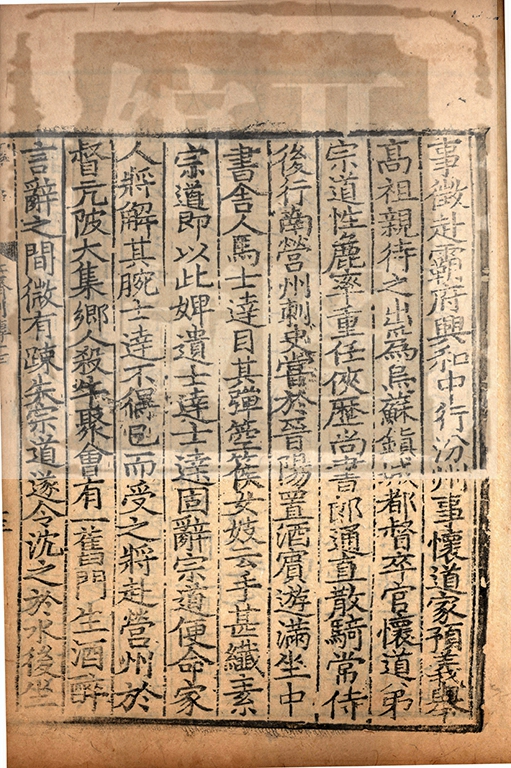 事徵赴霸府興和中行汾州事懷道家預義舉
高祖親待之出爲烏蘇鎮城都督卒官懷道弟
宗道性麄率重任俠歷尚書郎通直散騎常侍
後行南營州刺史嘗於晉陽置酒賓遊滿坐中
書舍人馬士達目其彈箜篌女妓云手甚纖素
宗道即以此婢遺士達士達固辭宗道便命家
人將解其腕士達不得已而受之將赴營州於
督元陂大集鄉人殺牛聚會有一舊門生酒醉
言辭之間微有踈失宗道遂令沈之於水後坐